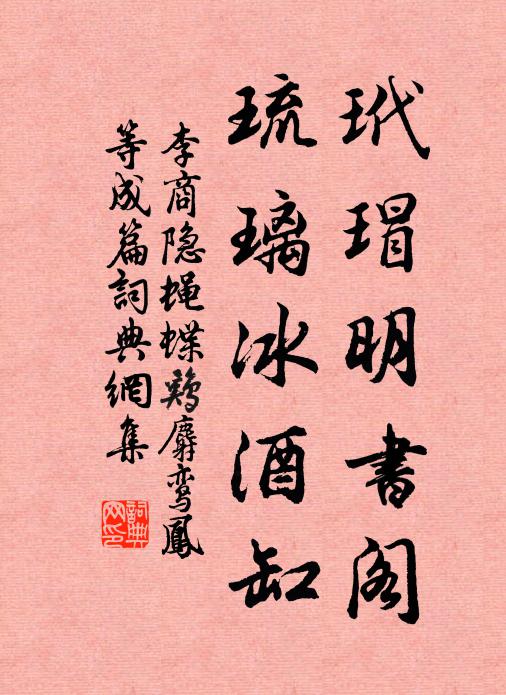 玳瑁明書阁
琉璃冰酒缸
李商隐蝇蝶鸡麝鸾鳳
等成篇詞典網集
詞典网印